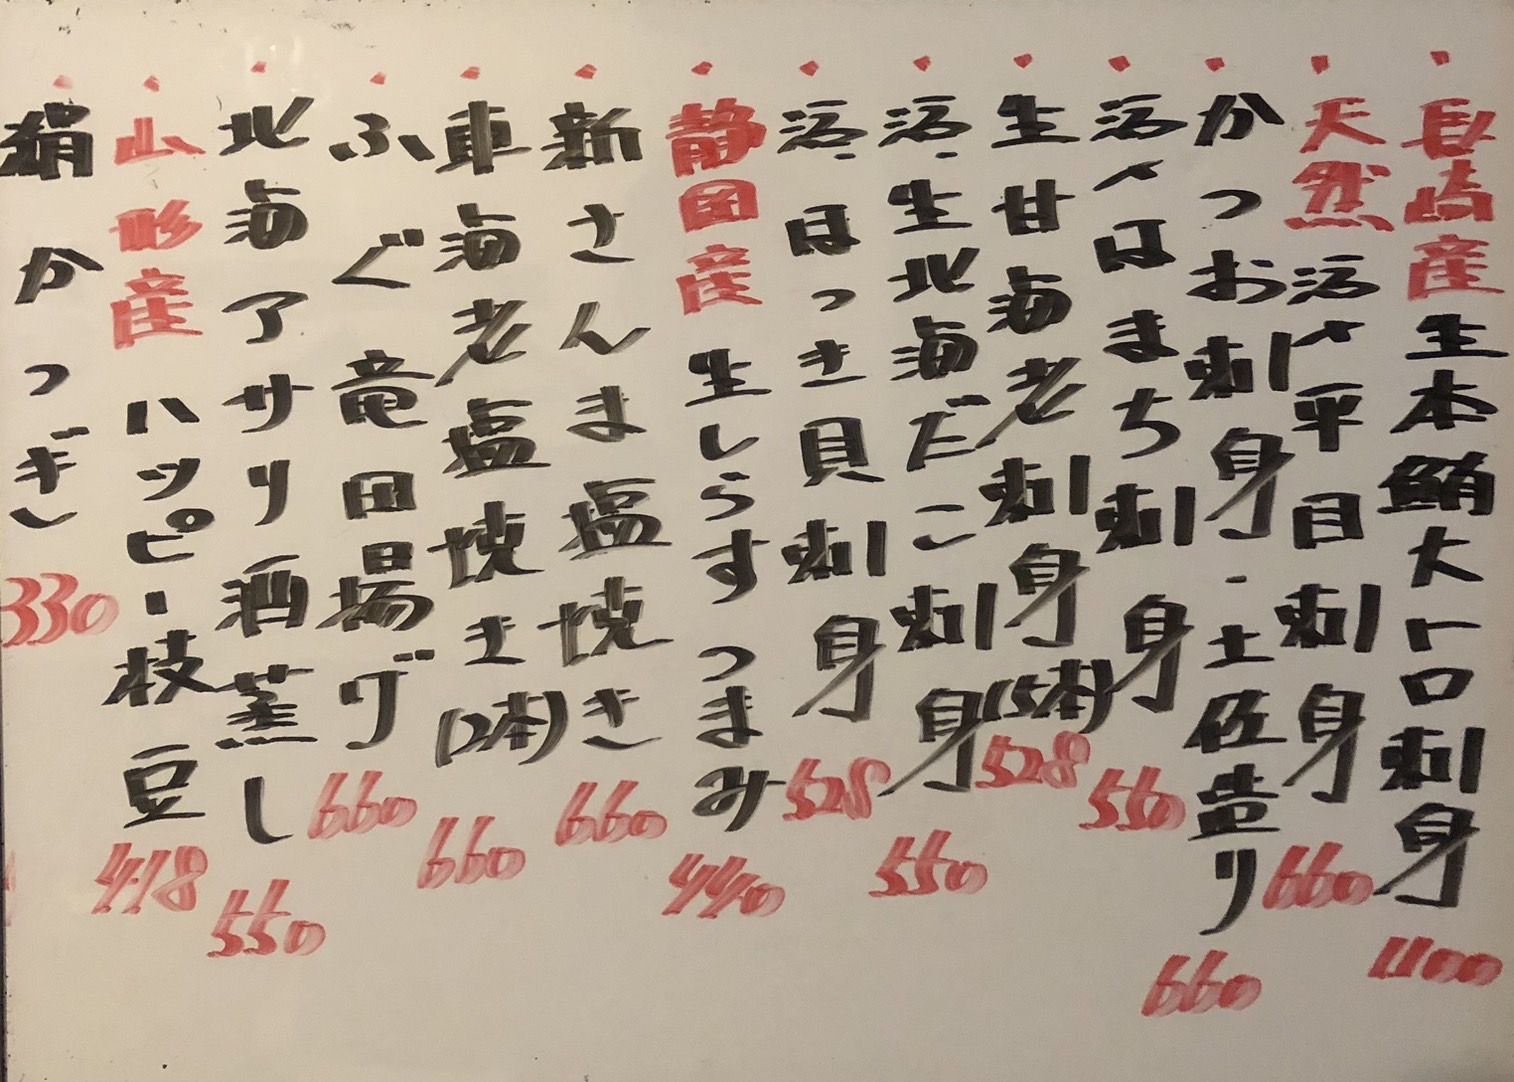 長崎産 生本鮪大トロ刺身 1100
天然 活〆平目刺身 660
かつお刺身・土佐造り 660
活〆はまち刺身 550
生甘海老刺身(5本) 528
活・生北海だこ刺身 550
活・ほっき貝刺身 528
静岡産 生しらすつまみ 440
新さんま塩焼き 660
車海老塩焼き(2本) 660
ふぐ竜田揚げ 660
北海アサリ酒蒸し 550
山形産 ハッピー枝豆 418
絹かつぎ 330